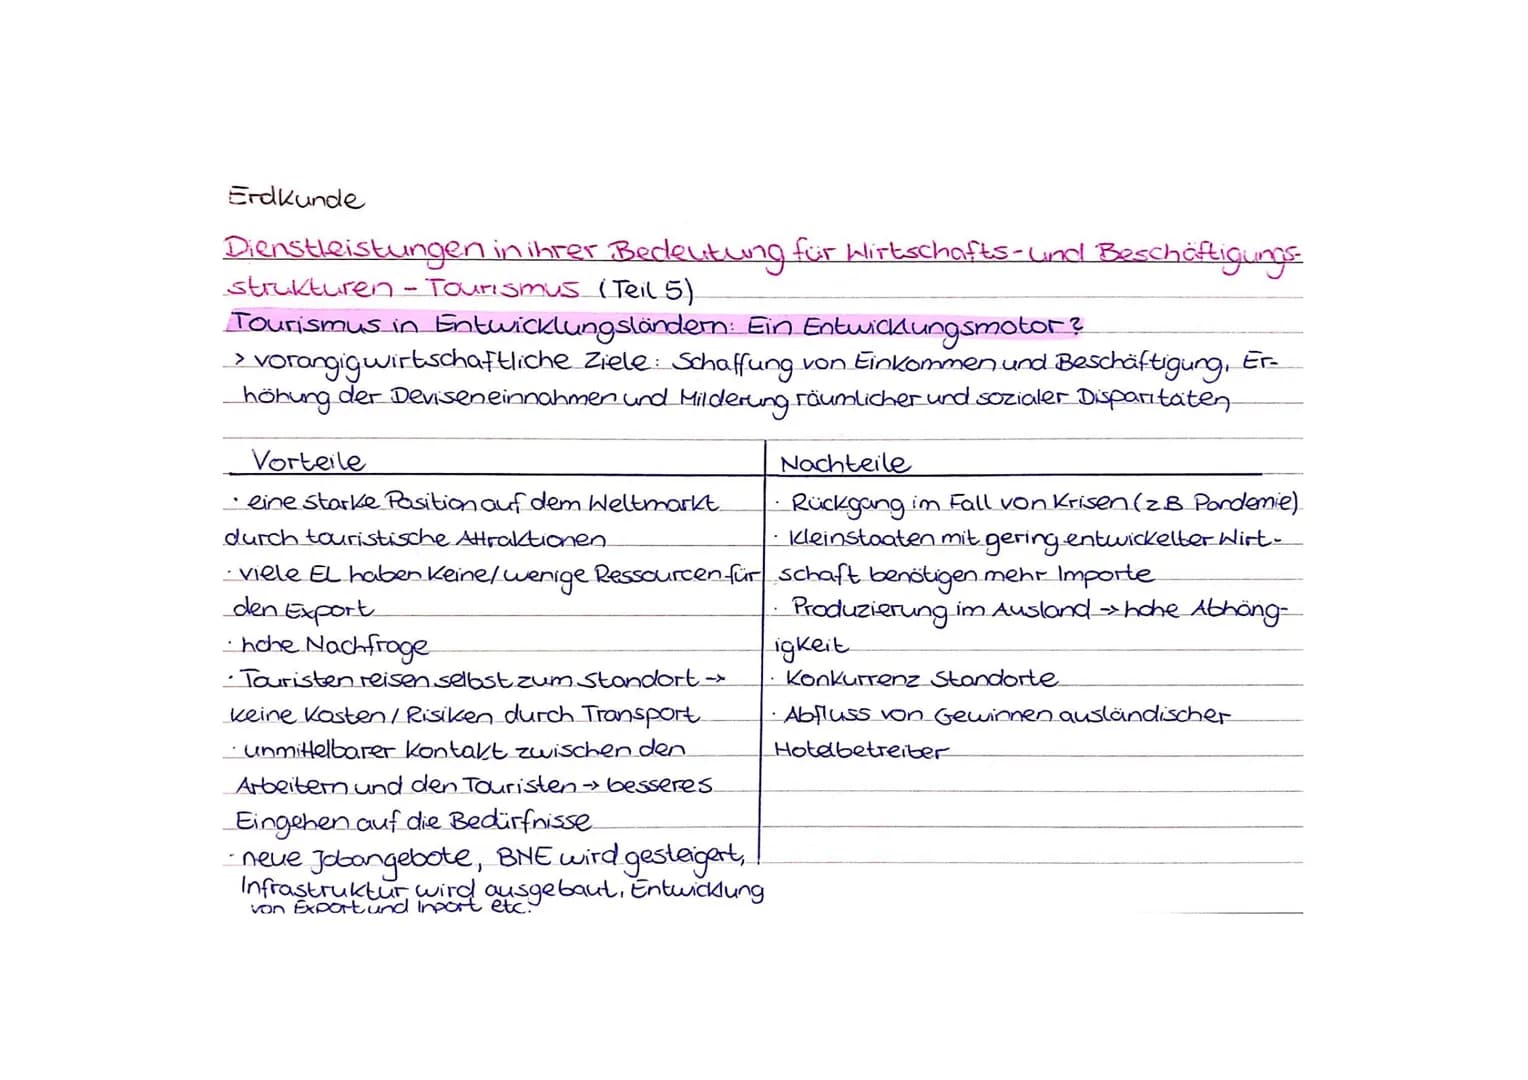 Erdkunde
Dienstleistungen in ihrer Bedeutung für Wirtschafts- und Beschäftigungs-
strukturen - Tourismus (Teil 5)
Tourismus in Entwicklungsländern: Ein Entwicklungsmotor?
> vorangig wirtschaftliche Ziele: Schaffung von Einkommen und Beschäftigung, Er-
höhung der Deviseneinnahmen und Milderung räumlicher und sozialer Disparitäten
Vorteile
· eine starke Position auf dem Weltmarkt
durch touristische Attraktionen
· viele EL haben keine/wenige Ressourcen für
den Export
· hohe Nachfrage
· Touristen reisen selbst zum Standort →
keine Kosten/Risiken durch Transport
· unmittelbarer Kontakt zwischen den
Arbeitern und den Touristen → besseres
Eingehen auf die Bedürfnisse
· neue Jobangebote, BNE wird gesteigert,
Infrastruktur wird ausgebaut, Entwicklung
von Export und Import etc.
Nachteile
· Rückgang im Fall von Krisen (z.B Pandemie)
· Kleinstaaten mit gering entwickelter Wirt-
schaft benötigen mehr Importe
· Produzierung im Ausland → hohe Abhäng-
igkeit
· Konkurrenz Standorte
· Abfluss von Gewinnen ausländischer
Hotelbetreiber